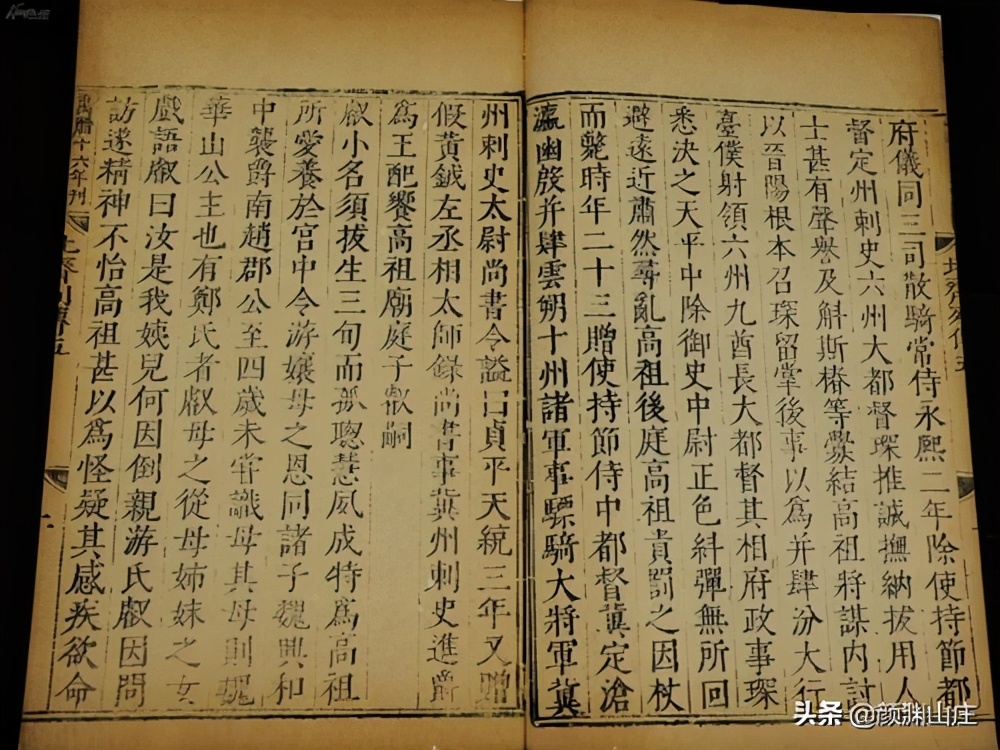 府儀同三司散騎常侍永熙二年除使持節都
督定州刺史六州大都督琛推誠撫納拔用人
士甚有聲譽及斛斯椿等釁結高祖將謀內討
以晉陽根本召琛留掌後事以爲并肆汾大行
臺僕射領六州九酋長大都督其相府政事琛
悉決之天平中除御史中尉正色糾彈無所回
避遠近肅然尋亂高祖後庭高祖責罰之因杖
而斃時年二十三贈使持節侍中都督冀定滄
瀛幽殷并肆雲朔十州諸軍事驃騎大將軍冀
州刺史太尉尚書令謚曰貞平天統三年又贈
假黃鉞左丞相太師錄尚書事冀州刺史進爵
爲王配饗高祖廟庭子叡嗣
叡小名須拔生三旬而孤聰慧夙成特爲高祖
所愛養於宮中令游孃母之恩同諸子魏興和
中襲爵南趙郡公至四歲未甞識母其母則魏
華山公主也有鄭氏者叡母之從母姊妹之女
戲語叡曰汝是我姨兒何因倒親游氏叡因問
訪遂精神不怡高祖甚以爲怪疑其感疾欲命
十六年刊
頭条 @颜渊山庄